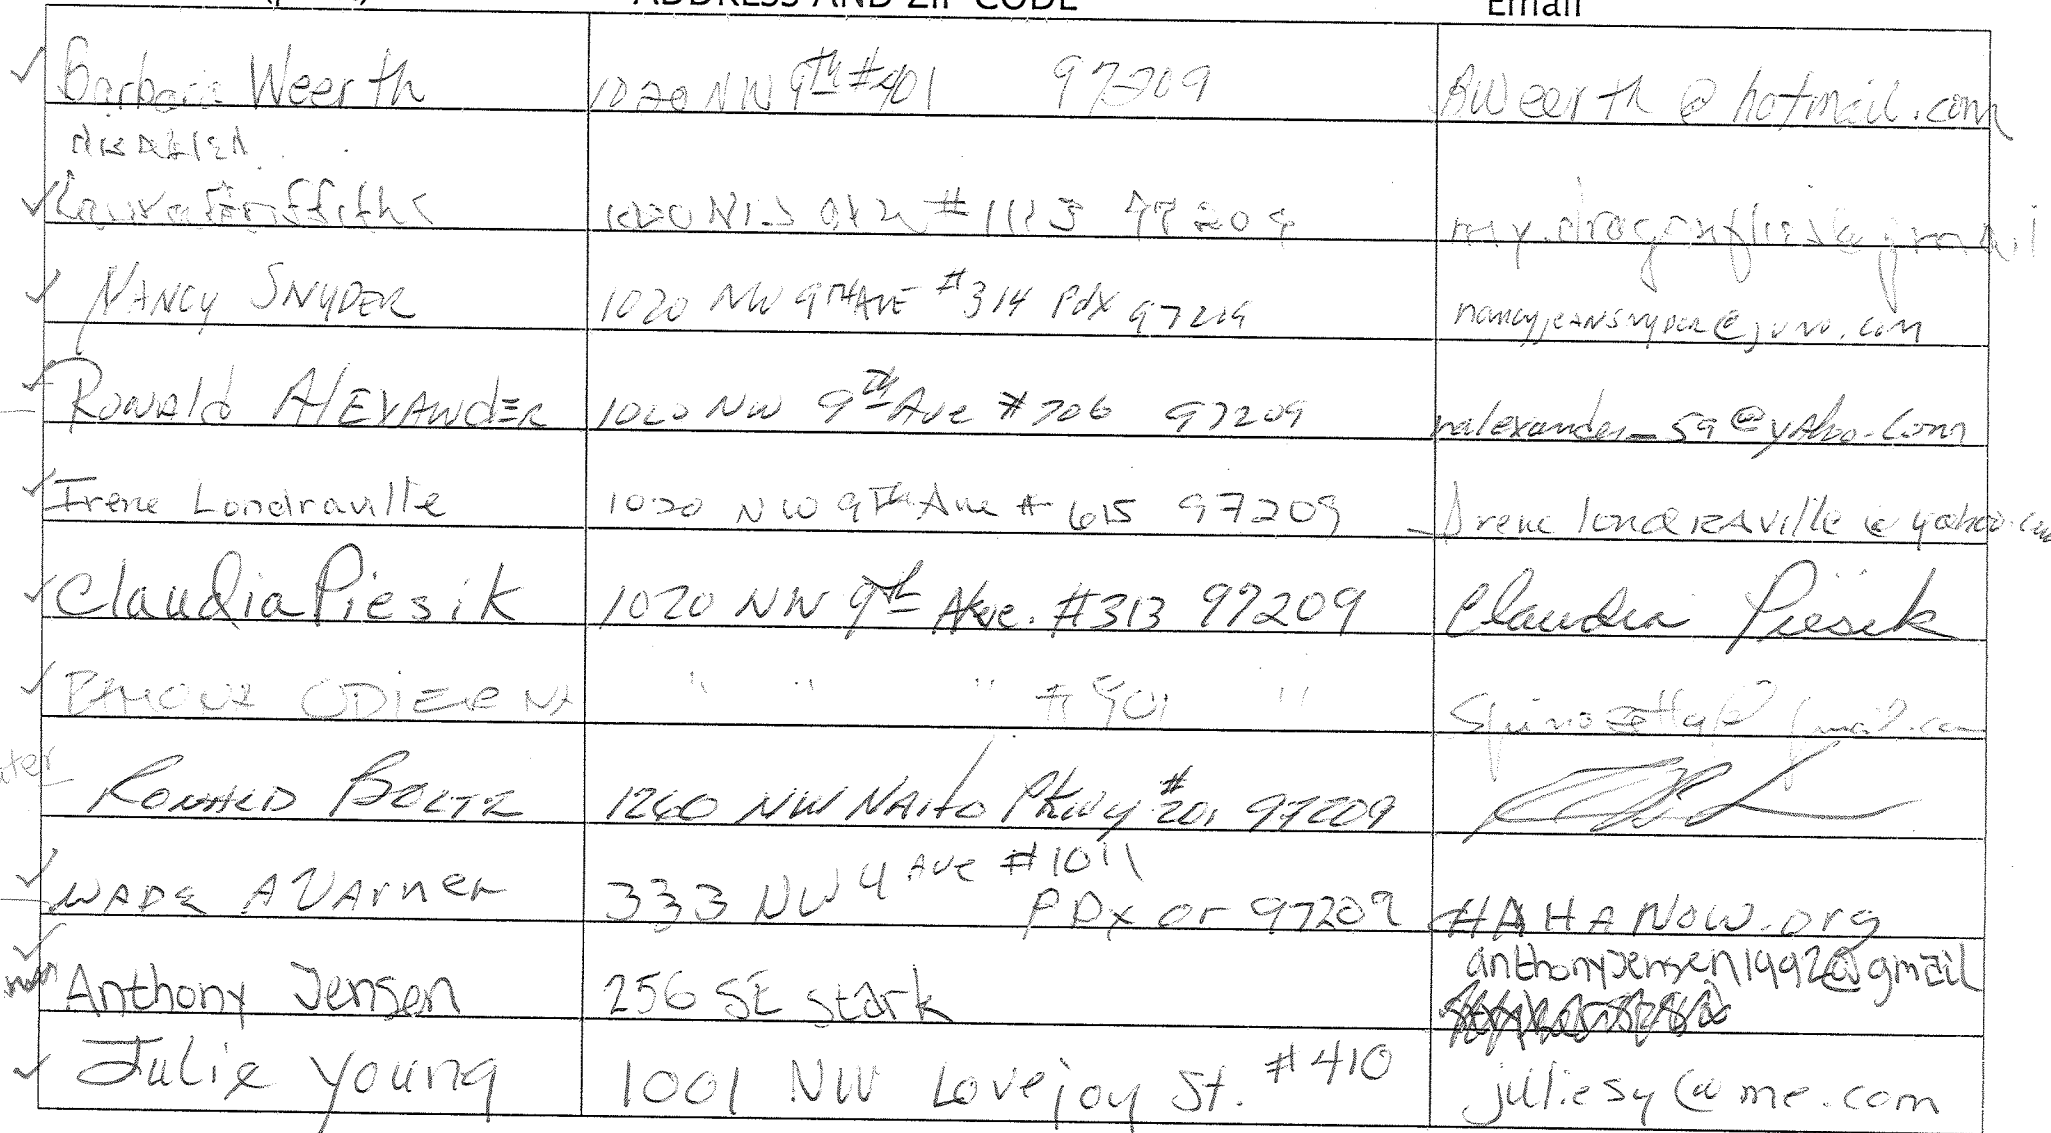 ADDRESS AND ZIP CODE Email
Barbara Weerth 1020 NW 9TH #401 97209 BWeerth@hotmail.com
DISABLED
Laura Griffiths 1020 NW 9th #1113 97209 my.dragonflies@gmail
NANCY SNYDER 1020 NW 9TH AVE #314 PdX 97209 nancyjeansnyder@juno.com
RONALD ALEXANDER 1020 NW 9TH Ave #706 97209 nalexander_59@yahoo.com
Irene Londraville 1020 NW 9Th Ave #615 97209 Irene londRAville@yahoo.com
Claudia Piesik 1020 NW 9th Ave. #313 97209 Claudia Piesik
ODIERNA " " " #901 "
RONALD 1260 NW NAito Pkwy #201 97209
WADE A VArner 333 NW 4 Ave #1011
PDx or 97209 HAHANOW.org
Anthony Jensen 256 SE Stark anthonyjensen1992@gmail
Julie Young 1001 NW Lovejoy St. #410 juliesy@me.com